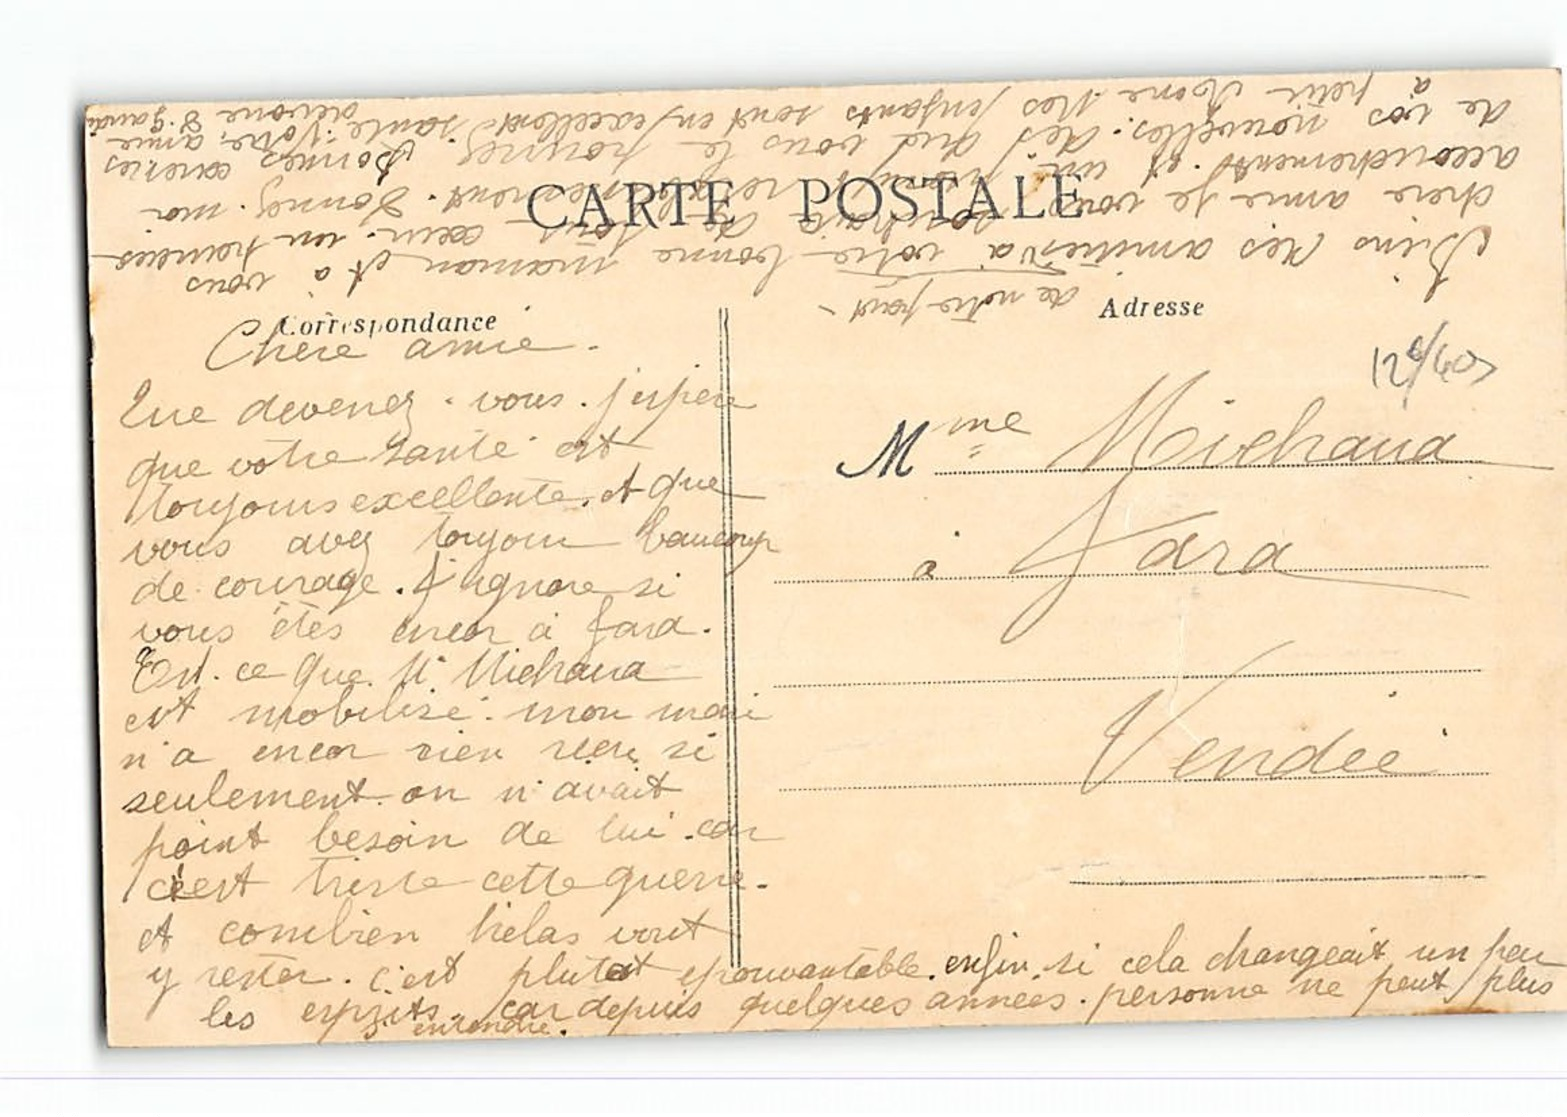 CARTE POSTALE
Correspondance
Adresse
12f/40
Chère amie.
Que devenez-vous. j'espère
que votre santé est
toujours excellente. et que
vous avez toujour beaucoup
de courage. J'ignore si
vous êtes encor à Jard.
Est-ce que Mr Michaud
est mobilisé. mon mari
n'a encor rien reçu si
seulement on n'avait
point besoin de lui. car
c'est triste cette guerre.
et combien hélas vont
y rester. c'est plutot epouvantable. enfin. si cela changeait un peu
les esprits. car depuis quelques années. personne ne peut plus
s'entendre.
Mme Michaud
à Jard
Vendée
de notre part
Bien des amitiés à votre bonne maman et à vous
chère amie je vous souhaite de tout cœur un heureux
accouchement. et un
de vos nouvelles. dès que vous le pourrez. Bonnes caresses
à petit Mes enfants sont en excellente santé. Votre amie
dévouée